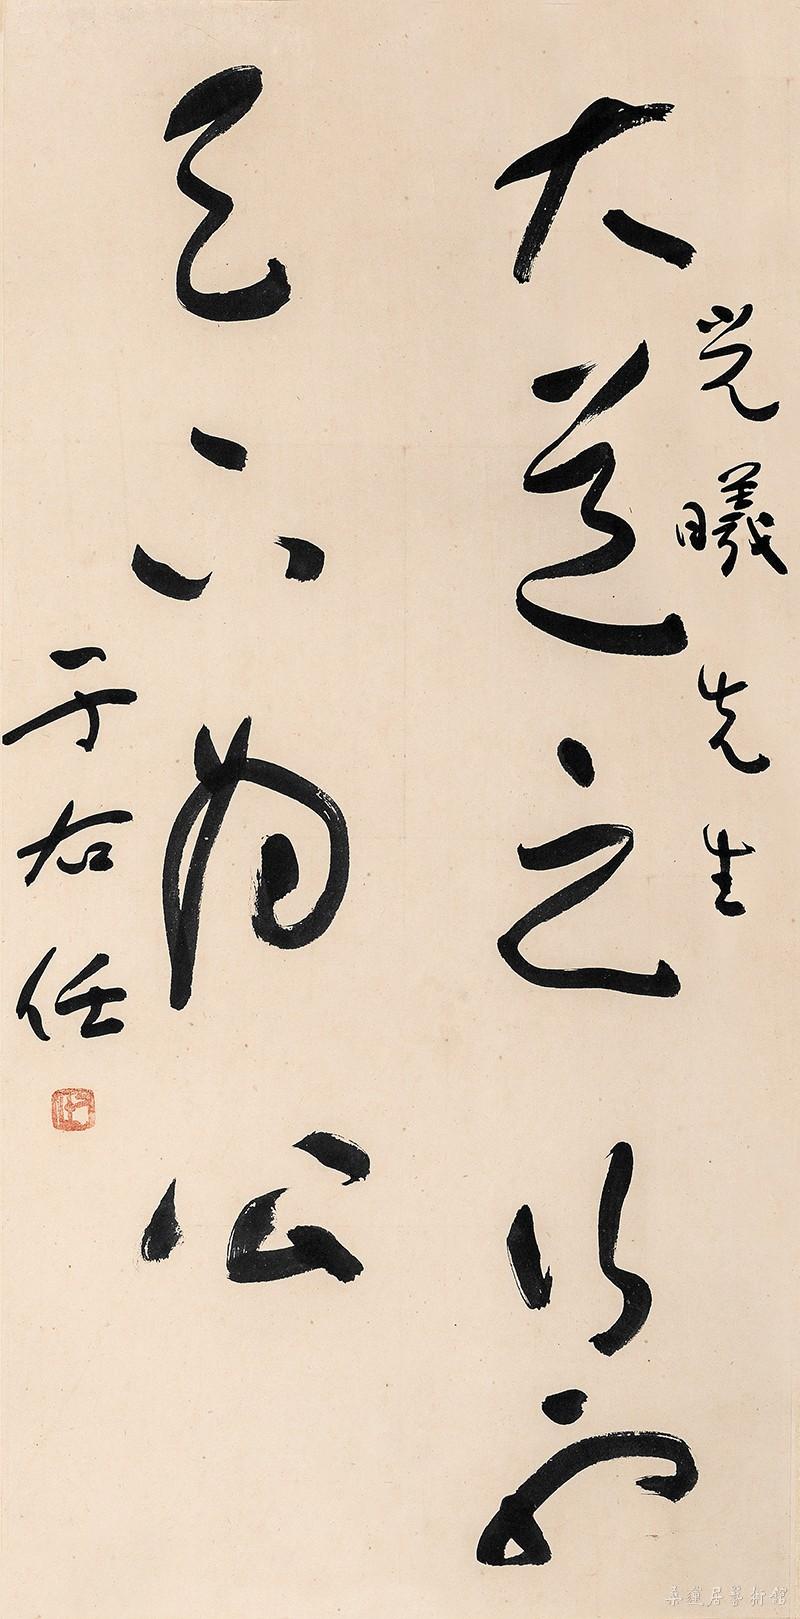 光曦先生
大道之行也
天下为公
于右任
桑莲居艺术馆